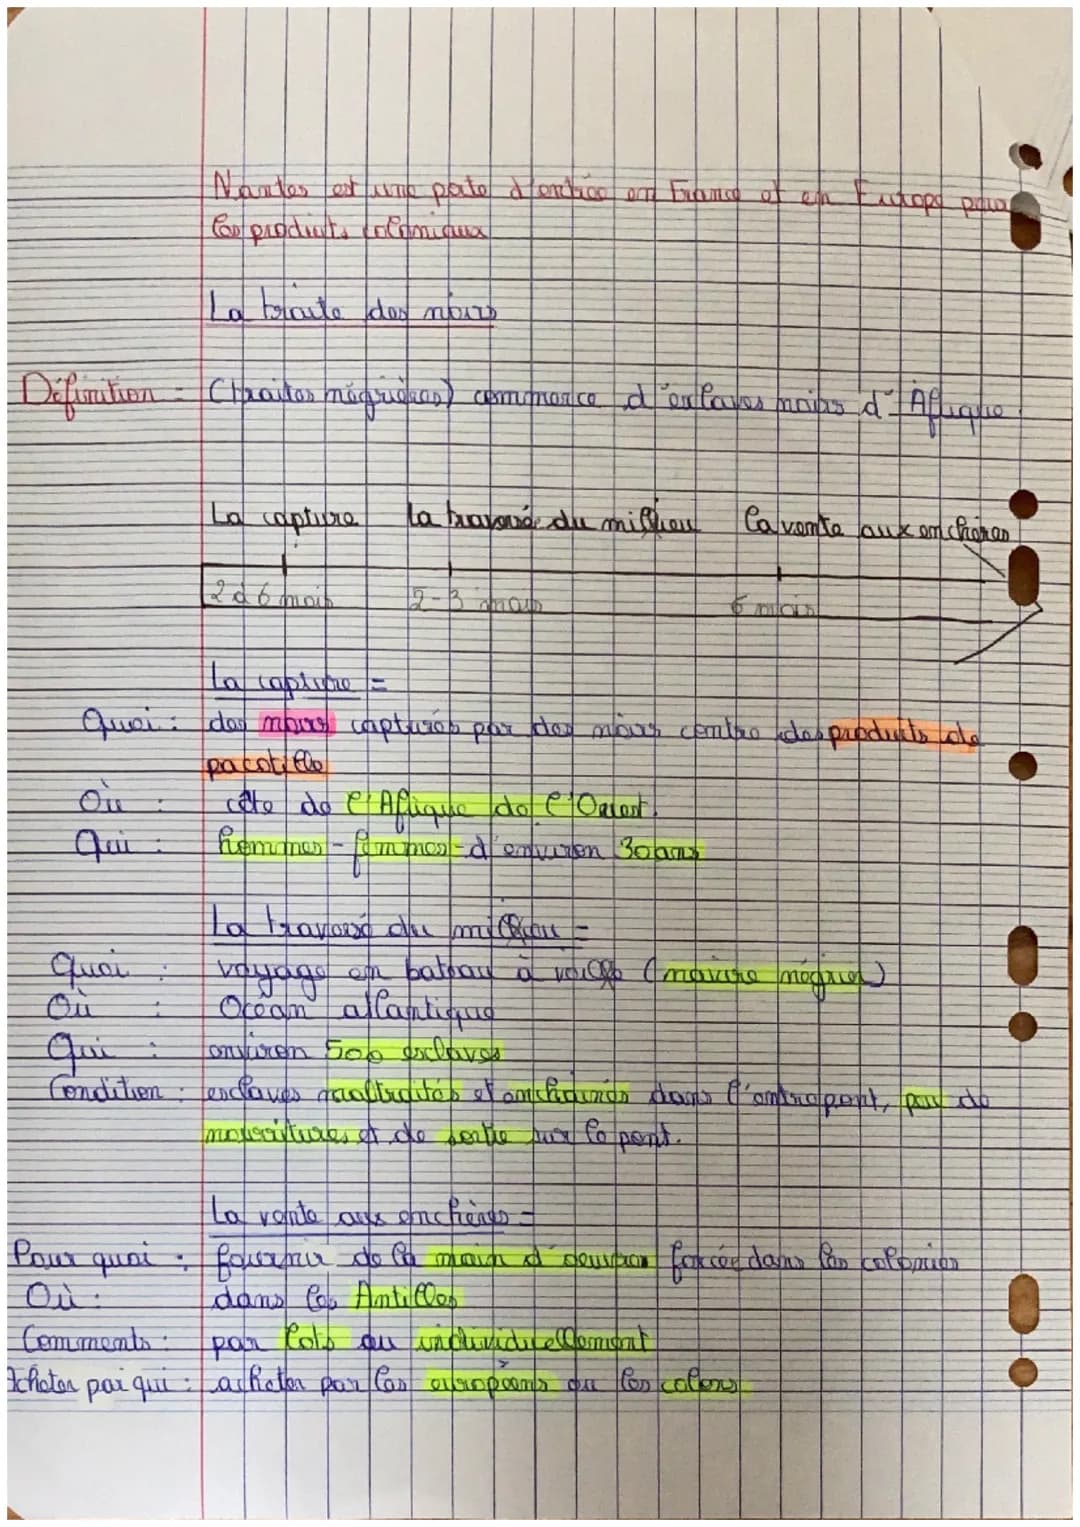 Nantes est une porte d'entrée en France et en Europe pour
les produits coloniaux
La traite des noirs
Définition = (traites négrières) commerce d'esclaves noirs d'Afrique
La capture la traversé du millieu la vente aux enchères
2 à 6 mois 2-3 mois 6 mois
La capture =
Quoi : des noirs capturés par des noirs contre des produits de
pacotille
Où : côte de l'Afique de l'Ouest.
Qui : hommes - femmes - d'environ 30 ans
La traversé du millieu =
Quoi : voyage en bateau à voille (navire négrier)
Où : Océan atlantique
Qui : environ 500 esclaves
Condition : esclaves maltraités et enchainés dans l'entrepont, peu de
nourritures et de sortie sur le pont.
La vente aux enchères =
Pour quoi : fournir de la main d'oeuvre forcée dans les colonies
Où : dans les Antilles
Comments : par lots ou individuellement
Acheter par qui : acheter par les européens ou les colons